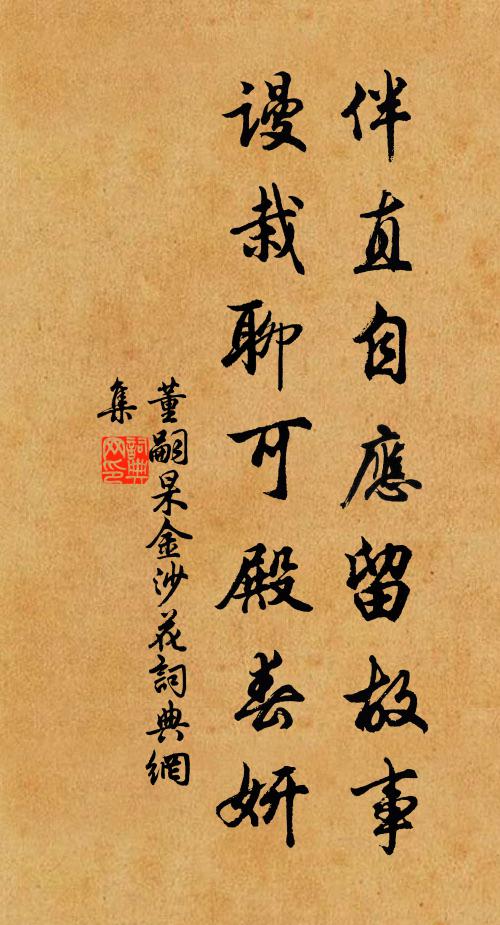 伴直自應留故事
謾栽聊可殿春妍
董嗣杲金沙花詞典網
集